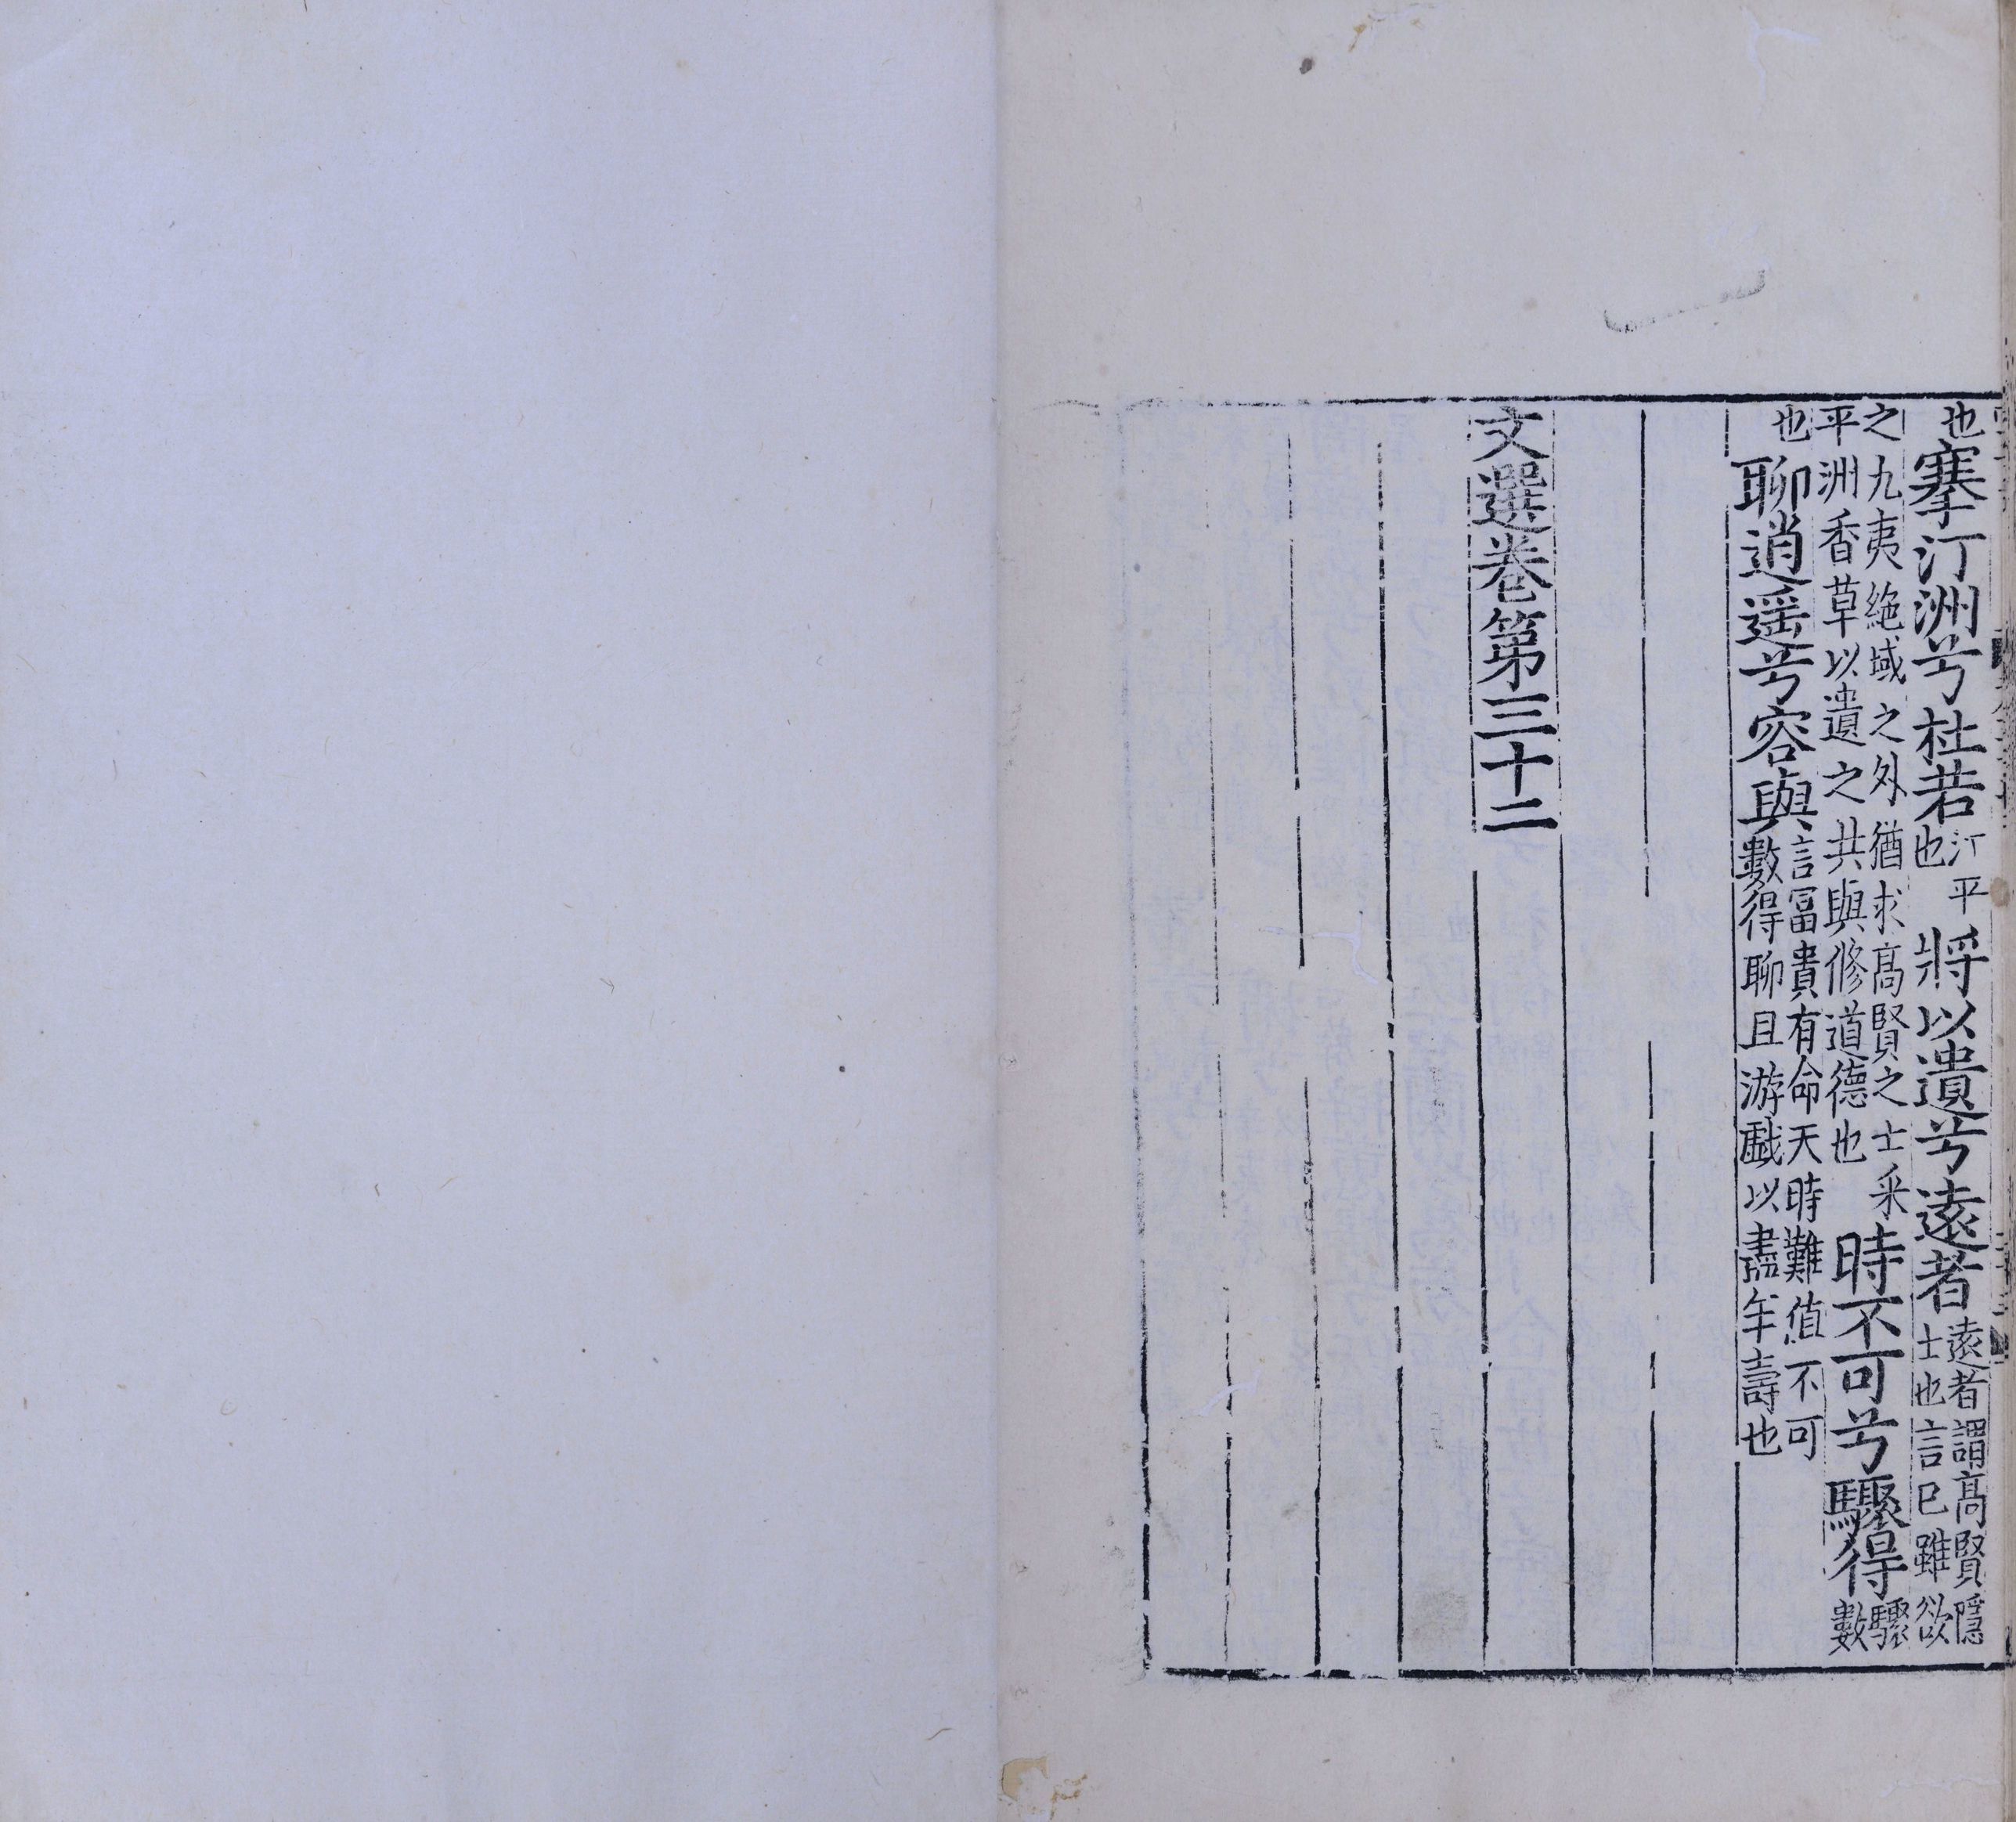 也搴汀洲兮杜若汀平也將以遺兮遠者遠者謂髙賢隱士也言已雖欲
之九夷絶域之外猶求髙賢之士釆平洲香草以遺之共與修道德也時不可兮驟得驟數
也聊逍遥兮容與言冨貴有命天時難值不可數得聊且游戯以盡年壽也
文選卷第三十二